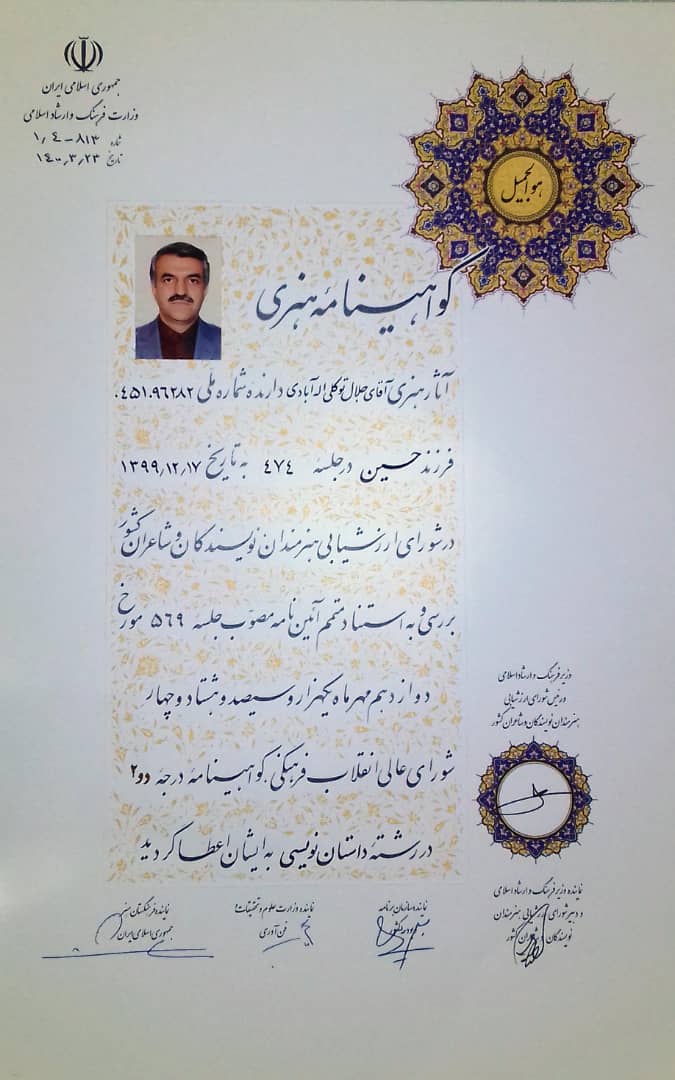 جمهوری اسلامی ایران
وزارت فرهنگ و ارشاد اسلامی
شماره ۱/۰۴-۸۱۳
تاریخ ۱۴۰۰/۳/۲۳
هو الجمیل
گواهینامهٔ هنری
آثار هنری آقای جلال توکلی اله آبادی دارنده شماره ملی ۰۴۵۱۰۹۶۲۸۲
فرزند حسین در جلسهٔ ۴۷۴ به تاریخ ۱۳۹۹/۱۲/۱۷
در شورای ارزشیابی هنرمندان نویسندگان و شاعران کشور
بررسی و به استناد متمم آئین نامه مصوب جلسهٔ ۵۶۹ مورخ
دوازدهم مهرماه یکهزار و سیصد و هشتاد و چهار
شورای عالی انقلاب فرهنگی گواهینامه درجهٔ دو۲
در رشتهٔ داستان نویسی به ایشان اعطا گردید
وزیر فرهنگ و ارشاد اسلامی
و رئیس شورای ارزشیابی
هنرمندان نویسندگان و شاعران کشور
نماینده وزیر فرهنگ و ارشاد اسلامی
و دبیر شورای ارزشیابی هنرمندان
نویسندگان و شاعران کشور
نماینده سازمان برنامه
و بودجه کشور
نماینده وزارت علوم و تحقیقات و
فن آوری
نماینده فرهنگستان هنر
جمهوری اسلامی ایران